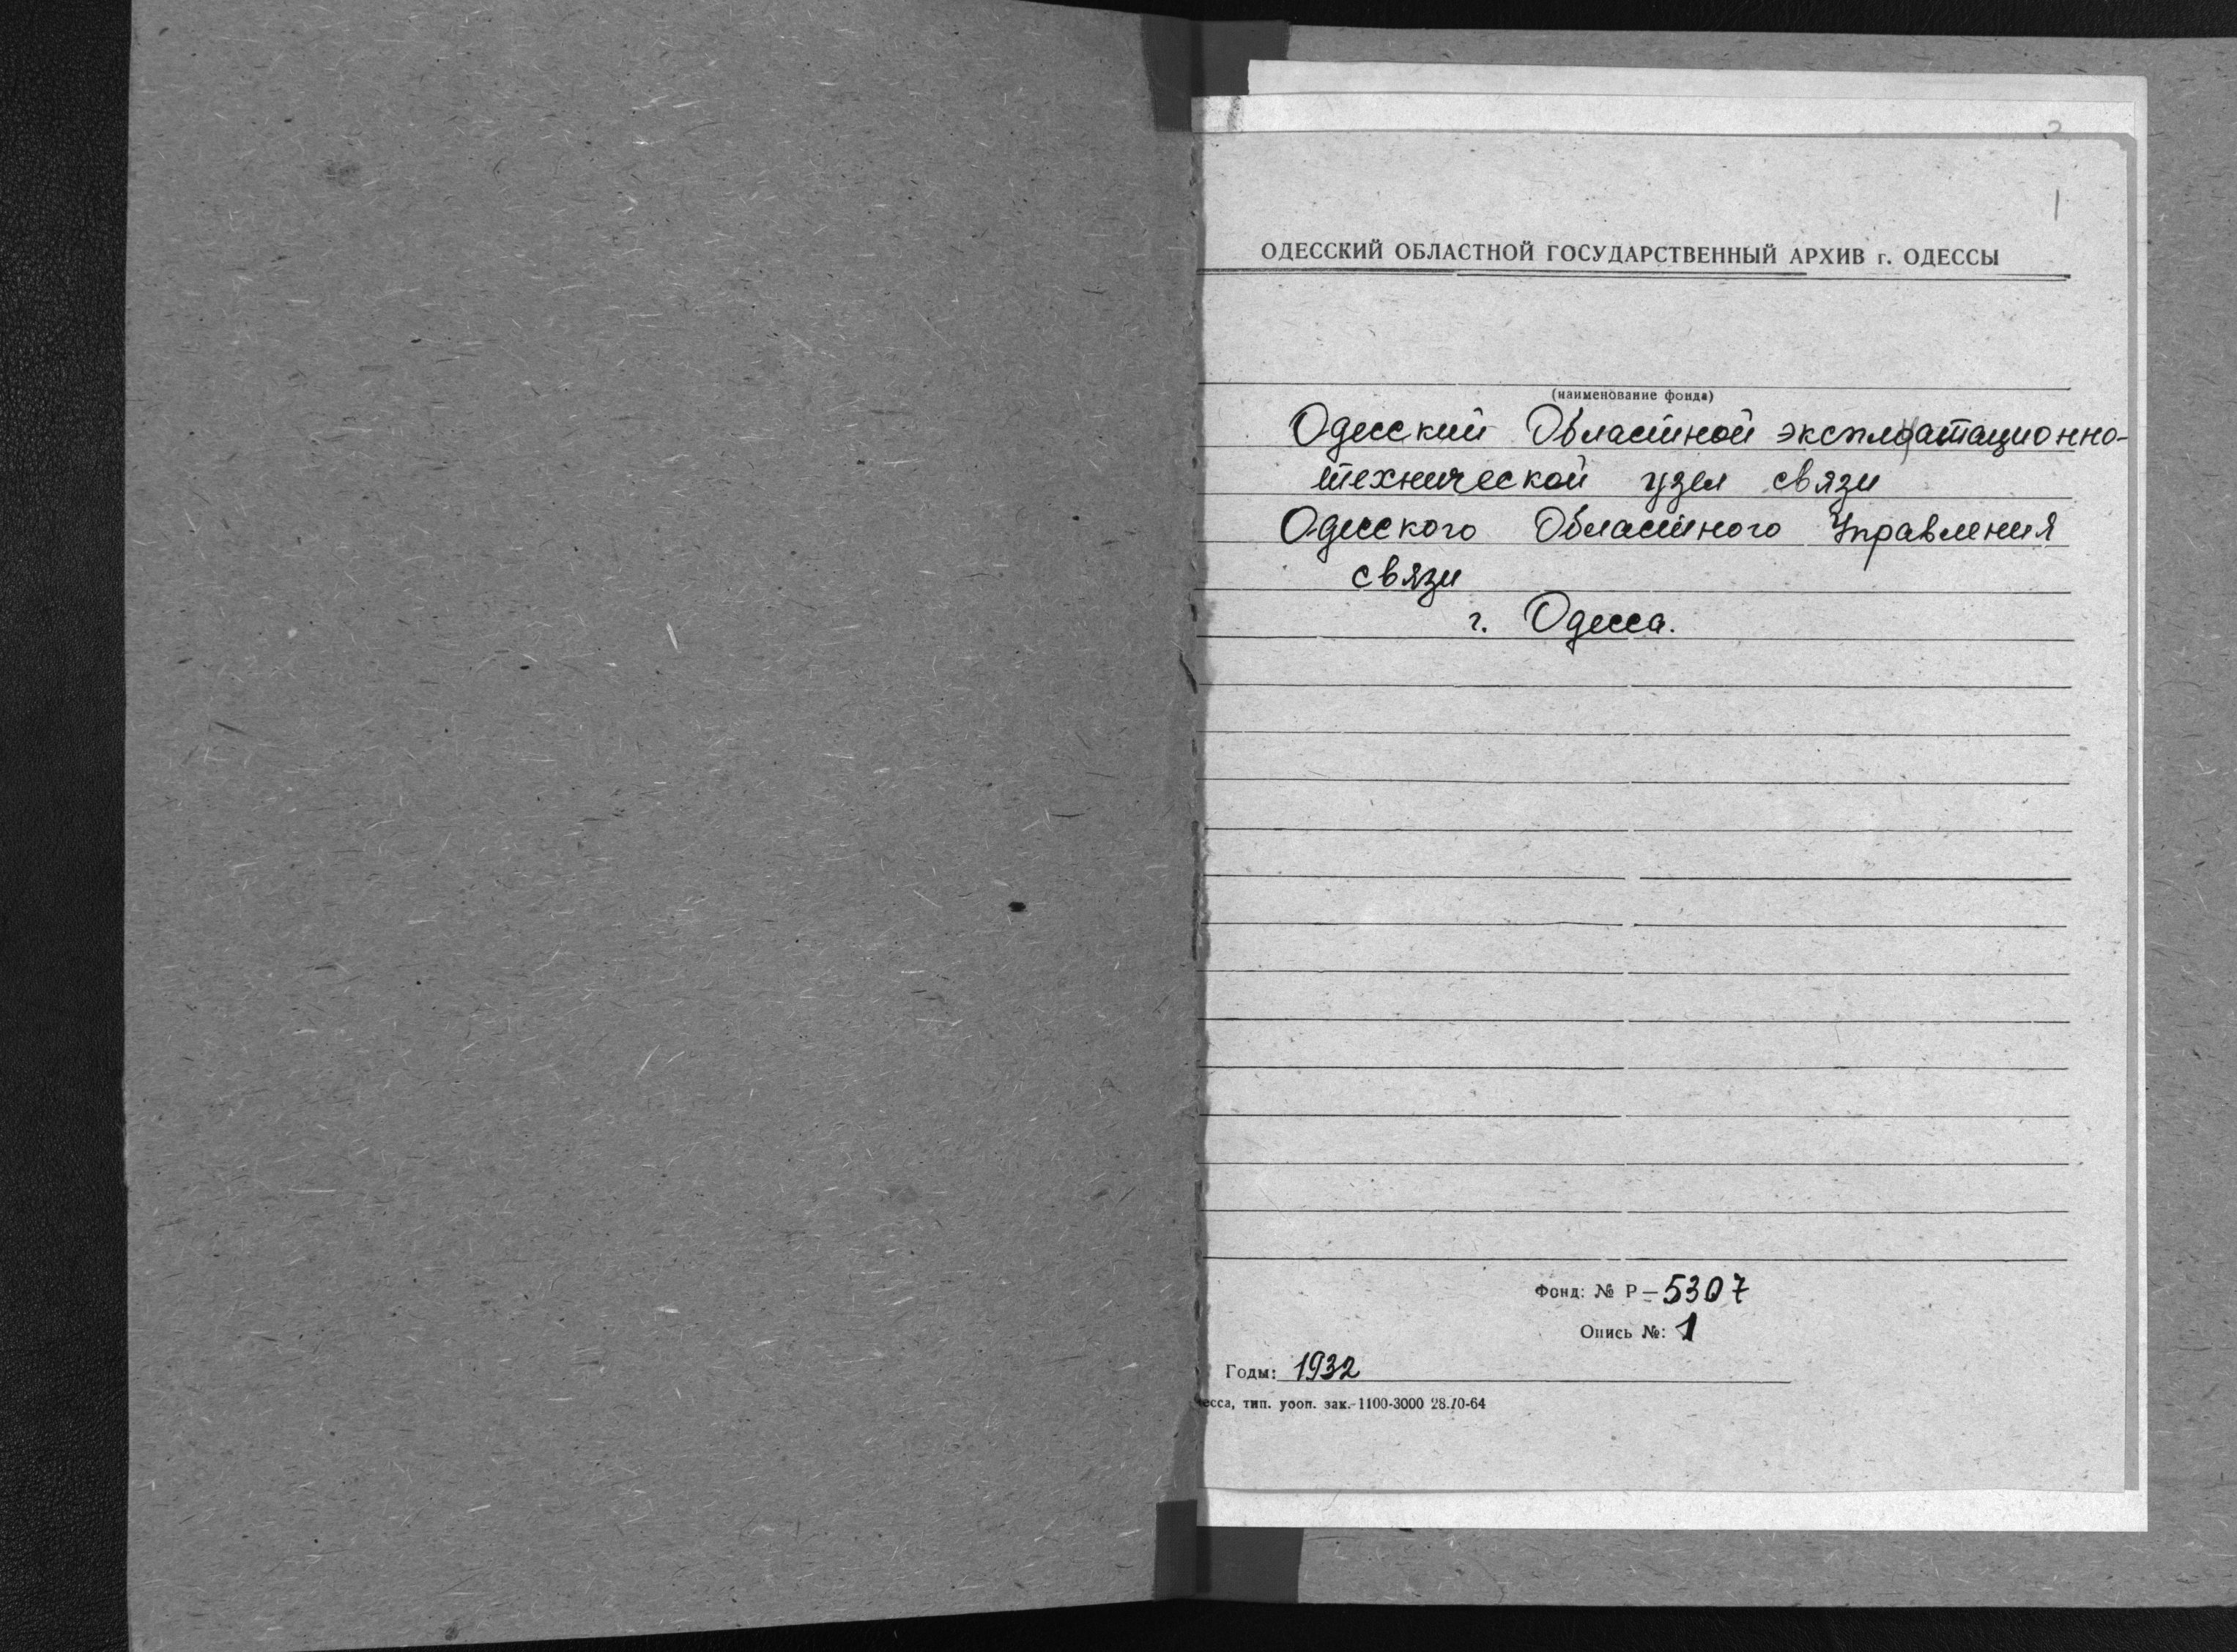 1
ОДЕССКИЙ ОБЛАСТНОЙ ГОСУДАРСТВЕННЫЙ АРХИВ г. ОДЕССЫ
(наименование фонда)
Одесский Областной эксплуатационно-
технической узел связи
Одесского Областного Управления
связи
г. Одесса.
Фонд: № Р-5307
Опись №: 1
Годы: 1932
есса, тип. уооп. зак. 1100-3000 28.10-64